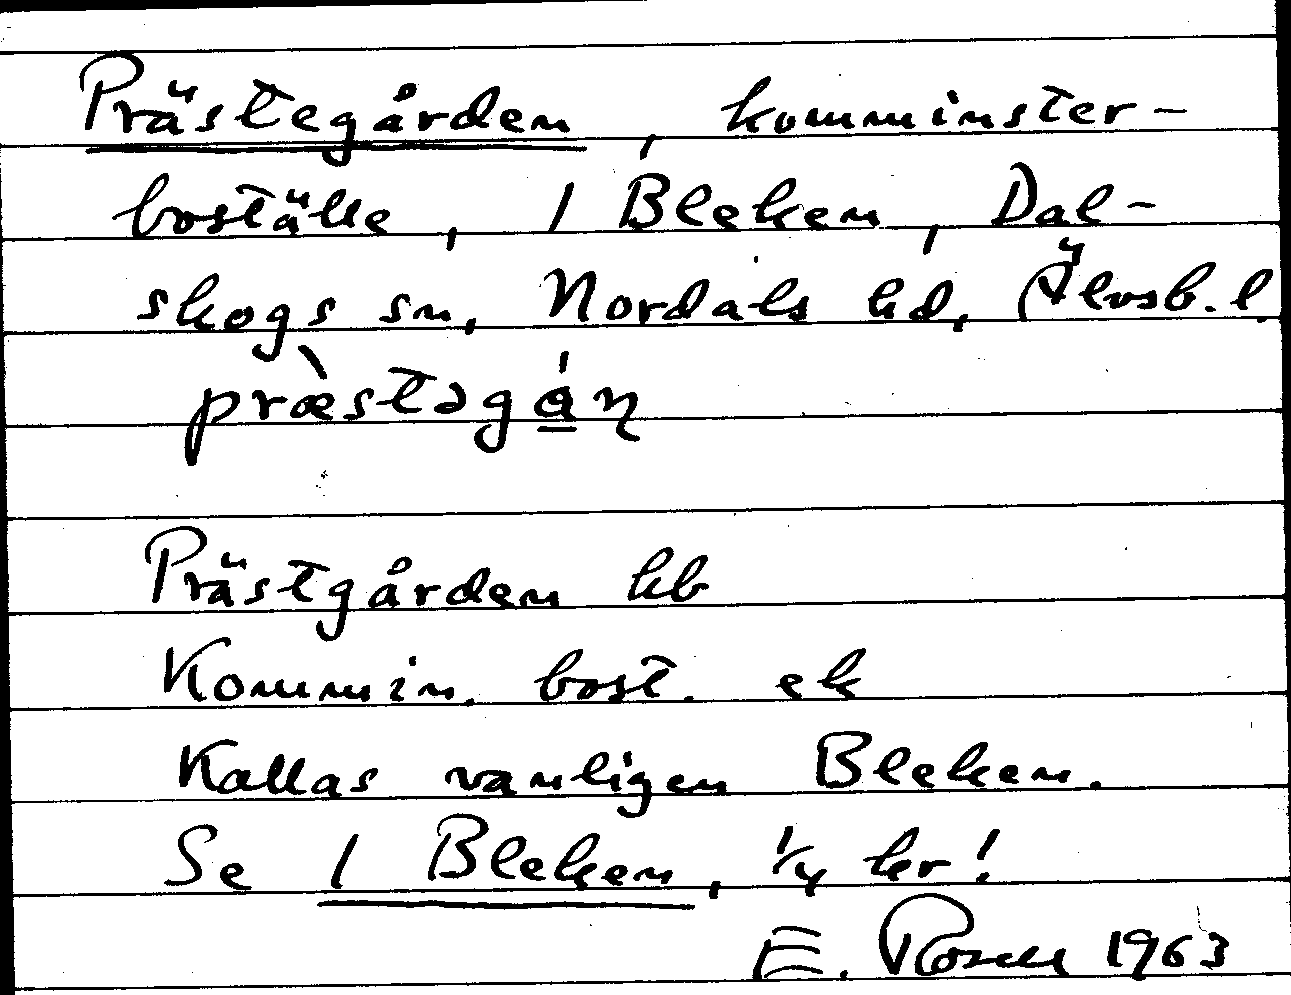 Prästegården, komminster-
boställe, 1 Bleken, Dal-
skogs sn, Nordals hd, Älvsb. l.
præ̀stəgá̠ɳ
Prästgården hb
Kommin. bost. ek
Kallas vanligen Bleken.
Se 1 Bleken, 1/4 hr!
E. Rosell 1963